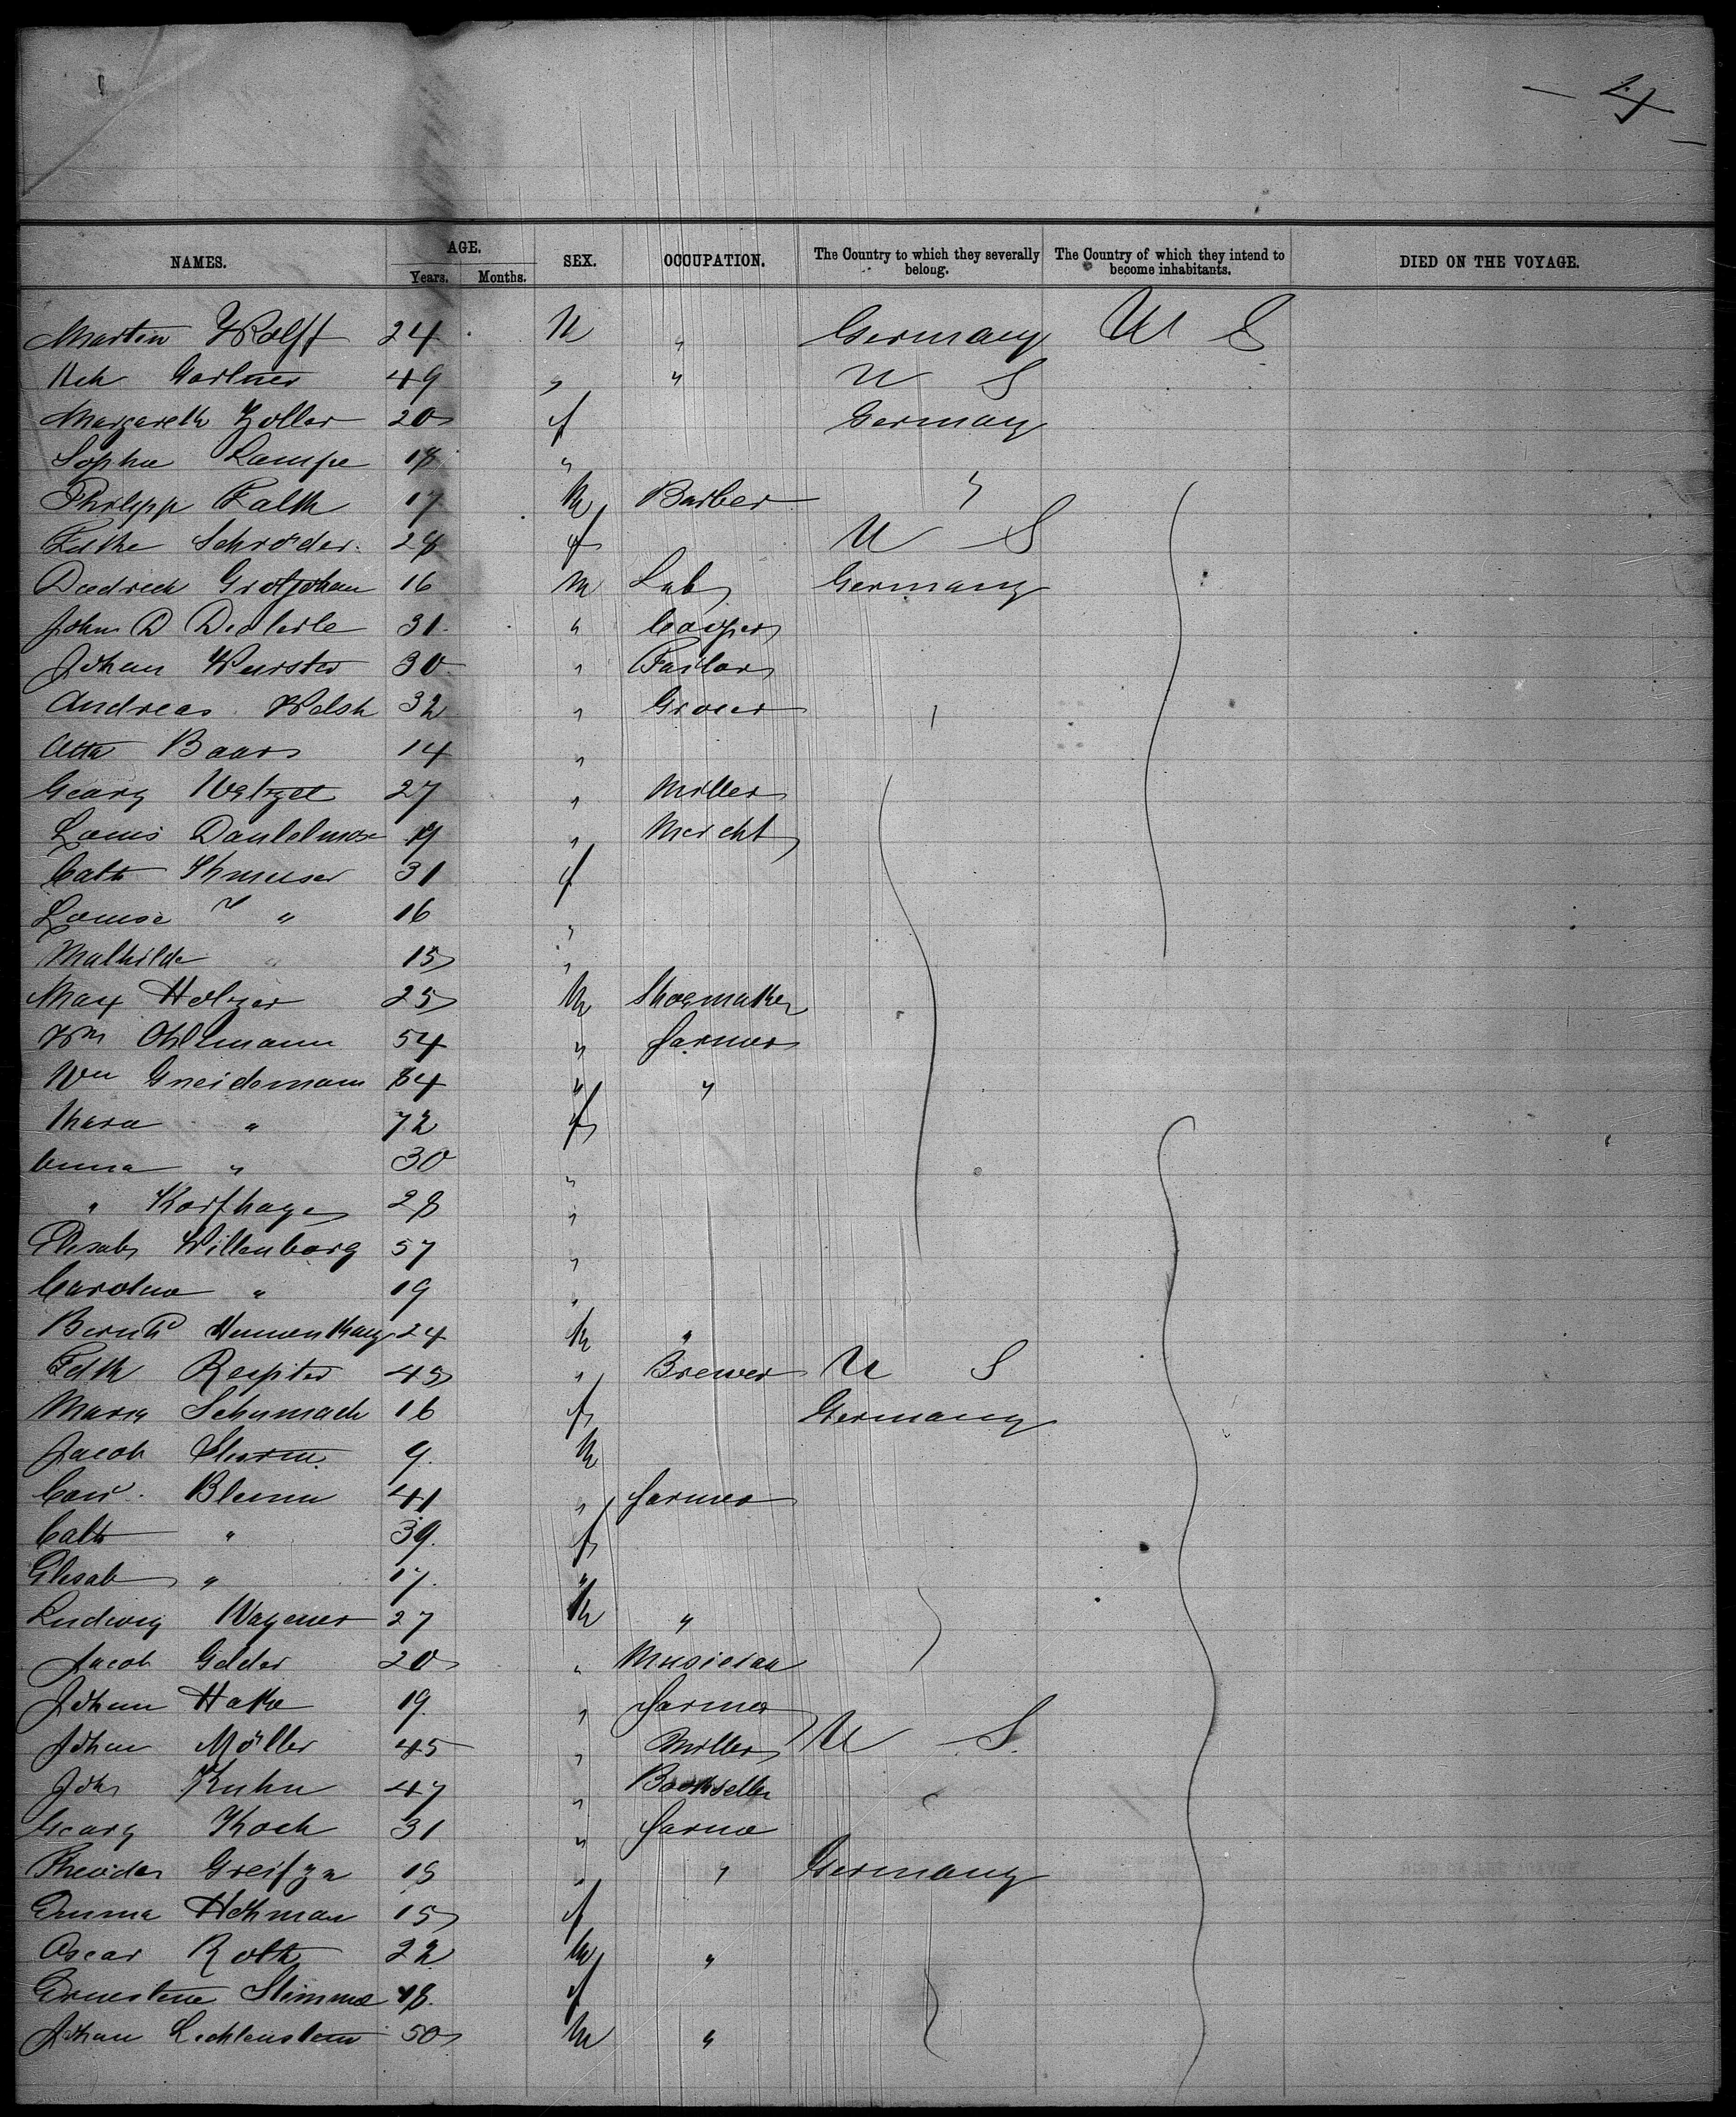 — 4 —
NAMES. AGE. Years. Months. SEX. OCCUPATION. The Country to which they severally belong. The Country of which they intend to become inhabitants. DIED ON THE VOYAGE.
Martin Wolff 24 M " Germany U S
Hch Gartner 49 " " U S
Margareth Zoller 20 f Germany
Sophie Lampe 18 "
Philipp Falk 17 M Barber "
Fdke Schröder 28 f U S
Diedrich Grotjohan 16 M Lab Germany
John D 31 " Cooper
Johan Wurster 30 " Tailor
Andreas Welsh 32 " Grocer "
Otto Baars 14 "
Georg Wetzel 27 " Miller
Louis 19 " Mercht
Cath 31 f
Louise " 16 "
Mathilde " 15 "
Max Holzer 25 M Shoemaker
Wm Ohlmann 54 " farmer
Wm Gneidemann 34 " "
Maria " 72 f
Anna " 30 "
" Korfhage 28 "
Elisab Willenborg 57 "
Carolina " 19 "
Bernhd 24 M "
Fdk Respiter 45 " Brewer U S
Maria Schumach 16 f Germany
Jacob Sturm 9 M
Conr. Blumm 41 " farmer
Cath " 39 f
Elisab " 17 "
Ludwig Wagener 27 M "
Jacob Gelder 20 " Musician
Johan Hake 19 " farmer
Johan Möller 45 " Miller U S
Joh Kuhn 47 " Bookseller "
Georg Koch 31 " farme
Theodor 15 " " Germany
Emma Hohman 15 f
Oscar Roth 22 M "
Ernestine Slimme 18 f
Johan Lichtenstein 50 M "